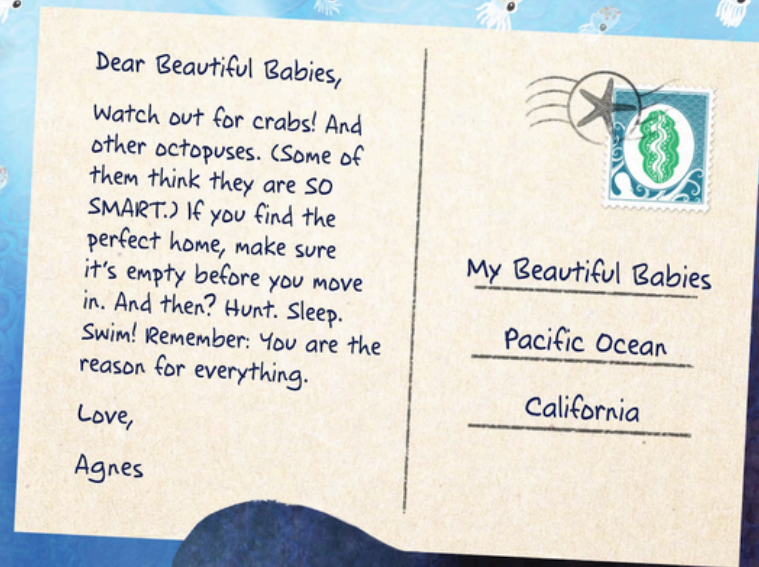 Dear Beautiful Babies,
Watch out for crabs! And
other octopuses. (Some of
them think they are SO
SMART.) If you find the
perfect home, make sure
it's empty before you move
in. And then? Hunt. Sleep.
Swim! Remember: You are the
reason for everything.
Love,
Agnes
My Beautiful Babies
Pacific Ocean
California